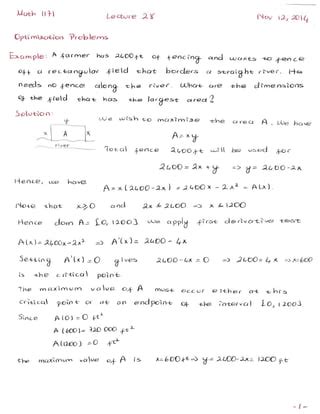 Math 1171 Lecture 28 Nov 12, 2014
Optimization Problems
Example: A farmer has 2400 ft of fencing and wants to fence
off a rectangular field that borders a straight river. He
needs no fence along the river. What are the dimensions
of the field that has the largest area?
Solution:
We wish to maximise the area A. We have
x A x A = xy
river
Total fence 2400 ft will be used for
2400 = 2x + y => y = 2400 - 2x
Hence, we have
A = x (2400 - 2x) = 2400 x - 2x² = A(x).
Note that x ≥ 0 and 2x ≤ 2400 => x ≤ 1200
Hence dom A = [0, 1200] we apply first derivative test.
A(x) = 2400x - 2x² => A'(x) = 2400 - 4x
Setting A'(x) = 0 gives 2400 - 4x = 0 => 2400 = 4x => x = 600
is the critical point.
The maximum value of A must occur either at this
critical point or at an endpoint of the interval [0, 1200].
Since A(0) = 0 ft²
A(600) = 720 000 ft²
A(1200) = 0 ft²
the maximum value of A is x = 600 ft => y = 2400 - 2x = 1200 ft
- 1 -